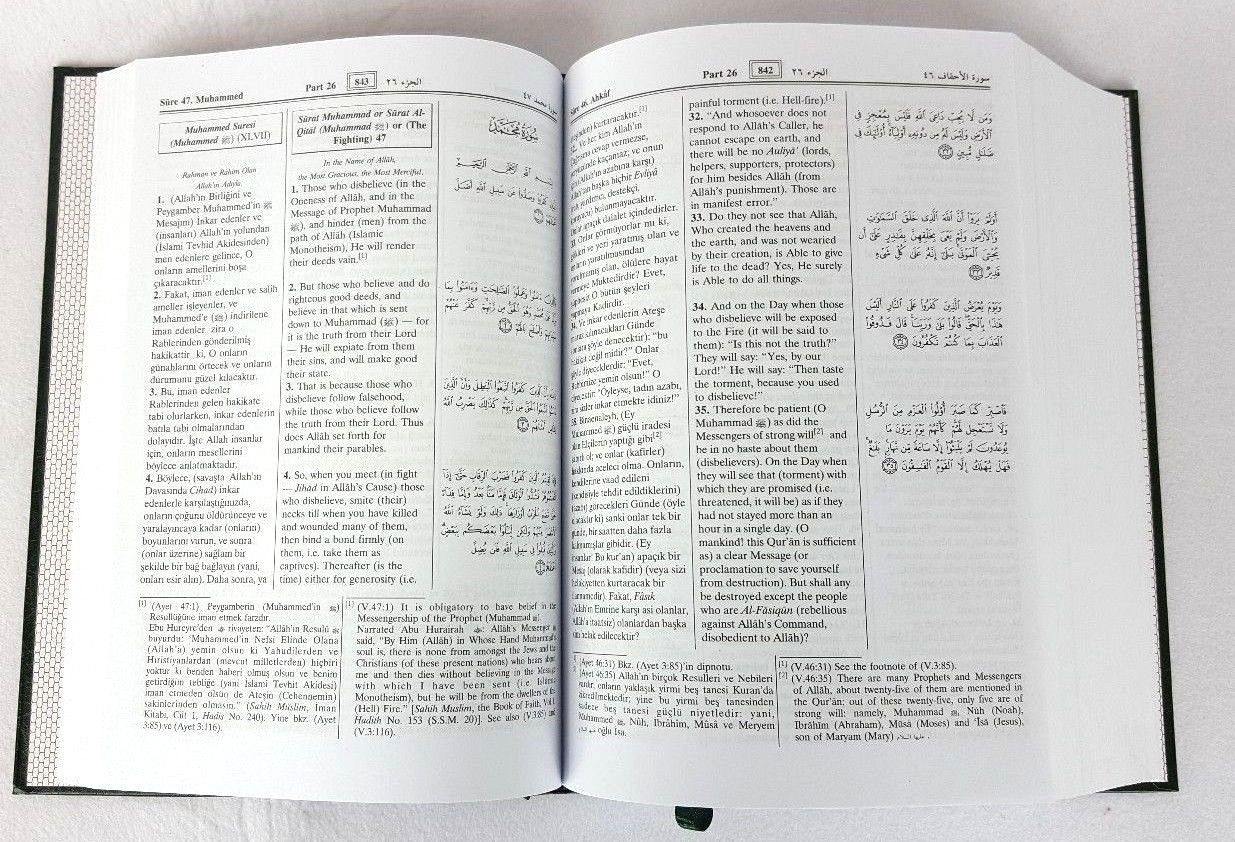 Sûre 46. Ahkâf
Part 26
842
الجزء ٢٦
سورة الأحقاف ٤٦
kurtaracaktır.[1]
Ve her kim Allah'ın
cevap vermezse,
kaçamaz; ve onun
(Allah'ın azabına karşı)
başka hiçbir Evliyâ
yardımcı, destekçi,
bulunmayacaktır.
apaçık dalalet içindedirler.
Onlar görmüyorlar mı ki,
gökleri ve yeri yaratmış olan ve
yaratılmasından
olan, ölülere hayat
Muktedirdir? Evet,
O bütün şeyleri
Kadirdir.
34. Ve inkar edenlerin Ateşe
Günde
denecektir): "bu
değil midir?" Onlar
diyeceklerdir: "Evet,
yemin olsun!" O
"Öyleyse, tadın azabı,
sizler inkar etmekte idiniz!"
35. Binaenaleyh, (Ey
Muhammed ﷺ) güçlü iradesi
Elçilerin yaptığı gibi[2]
ol; ve onlar (kafirler)
hakkında aceleci olma. Onların,
kendilerine vaad edilen
tehdit edildiklerini)
görecekleri Günde (öyle
ki) sanki onlar tek bir
bir saatten daha fazla
gibidir. (Ey
Bu kur'an) apaçık bir
(olarak kafidir) (veya sizi
kurtaracak bir
Fakat, Fâsık
Emrine karşı asi olanlar,
itaatsiz) olanlardan başka
helak edilecektir?
painful torment (i.e. Hell-fire).[1]
32. "And whosoever does not
respond to Allâh's Caller, he
cannot escape on earth, and
there will be no Auliyâ' (lords,
helpers, supporters, protectors)
for him besides Allâh (from
Allâh's punishment). Those are
in manifest error."
33. Do they not see that Allâh,
Who created the heavens and
the earth, and was not wearied
by their creation, is Able to give
life to the dead? Yes, He surely
is Able to do all things.
34. And on the Day when those
who disbelieve will be exposed
to the Fire (it will be said to
them): "Is this not the truth?"
They will say: "Yes, by our
Lord!" He will say: "Then taste
the torment, because you used
to disbelieve!"
35. Therefore be patient (O
Muhammad ﷺ) as did the
Messengers of strong will[2] and
be in no haste about them
(disbelievers). On the Day when
they will see that (torment) with
which they are promised (i.e.
threatened, it will be) as if they
had not stayed more than an
hour in a single day. (O
mankind! this Qur'ân is sufficient
as) a clear Message (or
proclamation to save yourself
from destruction). But shall any
be destroyed except the people
who are Al-Fâsiqûn (rebellious
against Allâh's Command,
disobedient to Allâh)?
وَمَن لَّا يُجِبْ دَاعِيَ اللَّهِ فَلَيْسَ بِمُعْجِزٍ فِي
الْأَرْضِ وَلَيْسَ لَهُ مِن دُونِهِ أَوْلِيَاءُ أُولَٰئِكَ فِي
ضَلَالٍ مُّبِينٍ ٣٢
أَوَلَمْ يَرَوْا أَنَّ اللَّهَ الَّذِي خَلَقَ السَّمَاوَاتِ
وَالْأَرْضَ وَلَمْ يَعْيَ بِخَلْقِهِنَّ بِقَادِرٍ عَلَىٰ أَن
يُحْيِيَ الْمَوْتَىٰ بَلَىٰ إِنَّهُ عَلَىٰ كُلِّ شَيْءٍ
قَدِيرٌ ٣٣
وَيَوْمَ يُعْرَضُ الَّذِينَ كَفَرُوا عَلَى النَّارِ أَلَيْسَ
هَٰذَا بِالْحَقِّ قَالُوا بَلَىٰ وَرَبِّنَا قَالَ فَذُوقُوا
الْعَذَابَ بِمَا كُنتُمْ تَكْفُرُونَ ٣٤
فَاصْبِرْ كَمَا صَبَرَ أُولُوا الْعَزْمِ مِنَ الرُّسُلِ
وَلَا تَسْتَعْجِل لَّهُمْ كَأَنَّهُمْ يَوْمَ يَرَوْنَ مَا
يُوعَدُونَ لَمْ يَلْبَثُوا إِلَّا سَاعَةً مِّن نَّهَارٍ بَلَاغٌ
فَهَلْ يُهْلَكُ إِلَّا الْقَوْمُ الْفَاسِقُونَ ٣٥
(Ayet 46:31) Bkz. (Ayet 3:85)'in dipnotu.
(Ayet 46:35) Allah'ın birçok Resulleri ve Nebileri
vardır, onların yaklaşık yirmi beş tanesi Kuran'da
yine bu yirmi beş tanesinden
sadece beş tanesi güçlü niyetledir: yani,
Muhammed ﷺ, Nûh, Ibrâhîm, Mûsâ ve Meryem
oğlu Isa.
[1] (V.46:31) See the footnote of (V.3:85).
[2] (V.46:35) There are many Prophets and Messengers
of Allâh, about twenty-five of them are mentioned in
the Qur'ân; out of these twenty-five, only five are of
strong will: namely, Muhammad ﷺ, Nûh (Noah),
Ibrâhîm (Abraham), Mûsâ (Moses) and 'Îsâ (Jesus),
son of Maryam (Mary) عليهما السلام.
Sûre 47. Muhammed
Part 26
843
الجزء ٢٦
سورة محمد ٤٧
Muhammed Suresi
(Muhammed ﷺ) (XLVII)
Rahman ve Rahim Olan
Allah'ın Adıyla.
1. (Allah'ın Birliğini ve
Peygamber Muhammed'in ﷺ
Mesajını) İnkar edenler ve
(insanları) Allah'ın yolundan
(İslami Tevhid Akidesinden)
men edenlere gelince, O
onların amellerini boşa
çıkaracaktır.[1]
2. Fakat, iman edenler ve salih
ameller işleyenler, ve
Muhammed'e (ﷺ) indirilene
iman edenler zira o
Rablerinden gönderilmiş
hakikattir ki, O onların
günahlarını örtecek ve onların
durumunu güzel kılacaktır.
3. Bu, iman edenler
Rablerinden gelen hakikate
tabi olurlarken, inkar edenlerin
batıla tabi olmalarından
dolayıdır. İşte Allah insanlar
için, onların mesellerini
böylece anlatmaktadır.
4. Böylece, (savaşta Allah'ın
Davasında Cihad) inkar
edenlerle karşılaştığınızda,
onların çoğunu öldürünceye ve
yaralayıncaya kadar (onların)
boyunlarını vurun, ve sonra
(onlar üzerine) sağlam bir
şekilde bir bağ bağlayın (yani,
onları esir alın). Daha sonra, ya
Sûrat Muhammad or Sûrat Al-
Qitâl (Muhammad ﷺ) or (The
Fighting) 47
In the Name of Allâh,
the Most Gracious, the Most Merciful.
1. Those who disbelieve (in the
Oneness of Allâh, and in the
Message of Prophet Muhammad
ﷺ), and hinder (men) from the
path of Allâh (Islamic
Monotheism), He will render
their deeds vain.[1]
2. But those who believe and do
righteous good deeds, and
believe in that which is sent
down to Muhammad (ﷺ) — for
it is the truth from their Lord
— He will expiate from them
their sins, and will make good
their state.
3. That is because those who
disbelieve follow falsehood,
while those who believe follow
the truth from their Lord. Thus
does Allâh set forth for
mankind their parables.
4. So, when you meet (in fight
— Jihâd in Allâh's Cause) those
who disbelieve, smite (their)
necks till when you have killed
and wounded many of them,
then bind a bond firmly (on
them, i.e. take them as
captives). Thereafter (is the
time) either for generosity (i.e.
سُورَةُ مُحَمَّدٍ
بِسْمِ اللَّهِ الرَّحْمَٰنِ الرَّحِيمِ
كَفَرُوا وَصَدُّوا عَن سَبِيلِ اللَّهِ أَضَلَّ
آمَنُوا وَعَمِلُوا الصَّالِحَاتِ وَآمَنُوا بِمَا
مُحَمَّدٍ وَهُوَ الْحَقُّ مِن رَّبِّهِمْ كَفَّرَ عَنْهُمْ
سَيِّئَاتِهِمْ وَأَصْلَحَ بَالَهُمْ ٢
الَّذِينَ كَفَرُوا اتَّبَعُوا الْبَاطِلَ وَأَنَّ الَّذِينَ
اتَّبَعُوا الْحَقَّ مِن رَّبِّهِمْ كَذَٰلِكَ يَضْرِبُ اللَّهُ
أَمْثَالَهُمْ ٣
الَّذِينَ كَفَرُوا فَضَرْبَ الرِّقَابِ حَتَّىٰ إِذَا
فَشُدُّوا الْوَثَاقَ فَإِمَّا مَنًّا بَعْدُ وَإِمَّا فِدَاءً
تَضَعَ الْحَرْبُ أَوْزَارَهَا ذَٰلِكَ وَلَوْ يَشَاءُ اللَّهُ
مِنْهُمْ وَلَٰكِن لِّيَبْلُوَ بَعْضَكُم بِبَعْضٍ
قُتِلُوا فِي سَبِيلِ اللَّهِ فَلَن يُضِلَّ
[1] (Ayet 47:1) Peygamberin (Muhammed'in ﷺ)
Resullüğüne iman etmek farzdır.
Ebu Hureyre'den rivayeten: "Allâh'ın Resulü ﷺ
buyurdu: 'Muhammed'in Nefsi Elinde Olana
(Allah'a) yemin olsun ki Yahudilerden ve
Hıristiyanlardan (mevcut milletlerden) hiçbiri
yoktur ki benden haberi olmuş olsun ve benim
getirdiğim tebliğe (yani İslami Tevhit Akidesi)
iman etmeden olsun de Ateşin (Cehennemin)
sakinlerinden olmasın." (Sahih Müslim, İman
Kitabı, Cilt 1, Hadis No. 240). Yine bkz. (Ayet
3:85) ve (Ayet 3:116).
[1] (V.47:1) It is obligatory to have belief in the
Messengership of the Prophet (Muhammad ﷺ).
Narrated Abu Hurairah : Allâh's Messenger ﷺ
said, "By Him (Allâh) in Whose Hand Muhammad's
soul is, there is none from amongst the Jews and the
Christians (of these present nations) who hears about
me and then dies without believing in the Message
with which I have been sent (i.e. Islamic
Monotheism), but he will be from the dwellers of the
(Hell) Fire." [Sahih Muslim, the Book of Faith, Vol.1
Hadith No. 153 (S.S.M. 20)]. See also (V.3:85) and
(V.3:116).